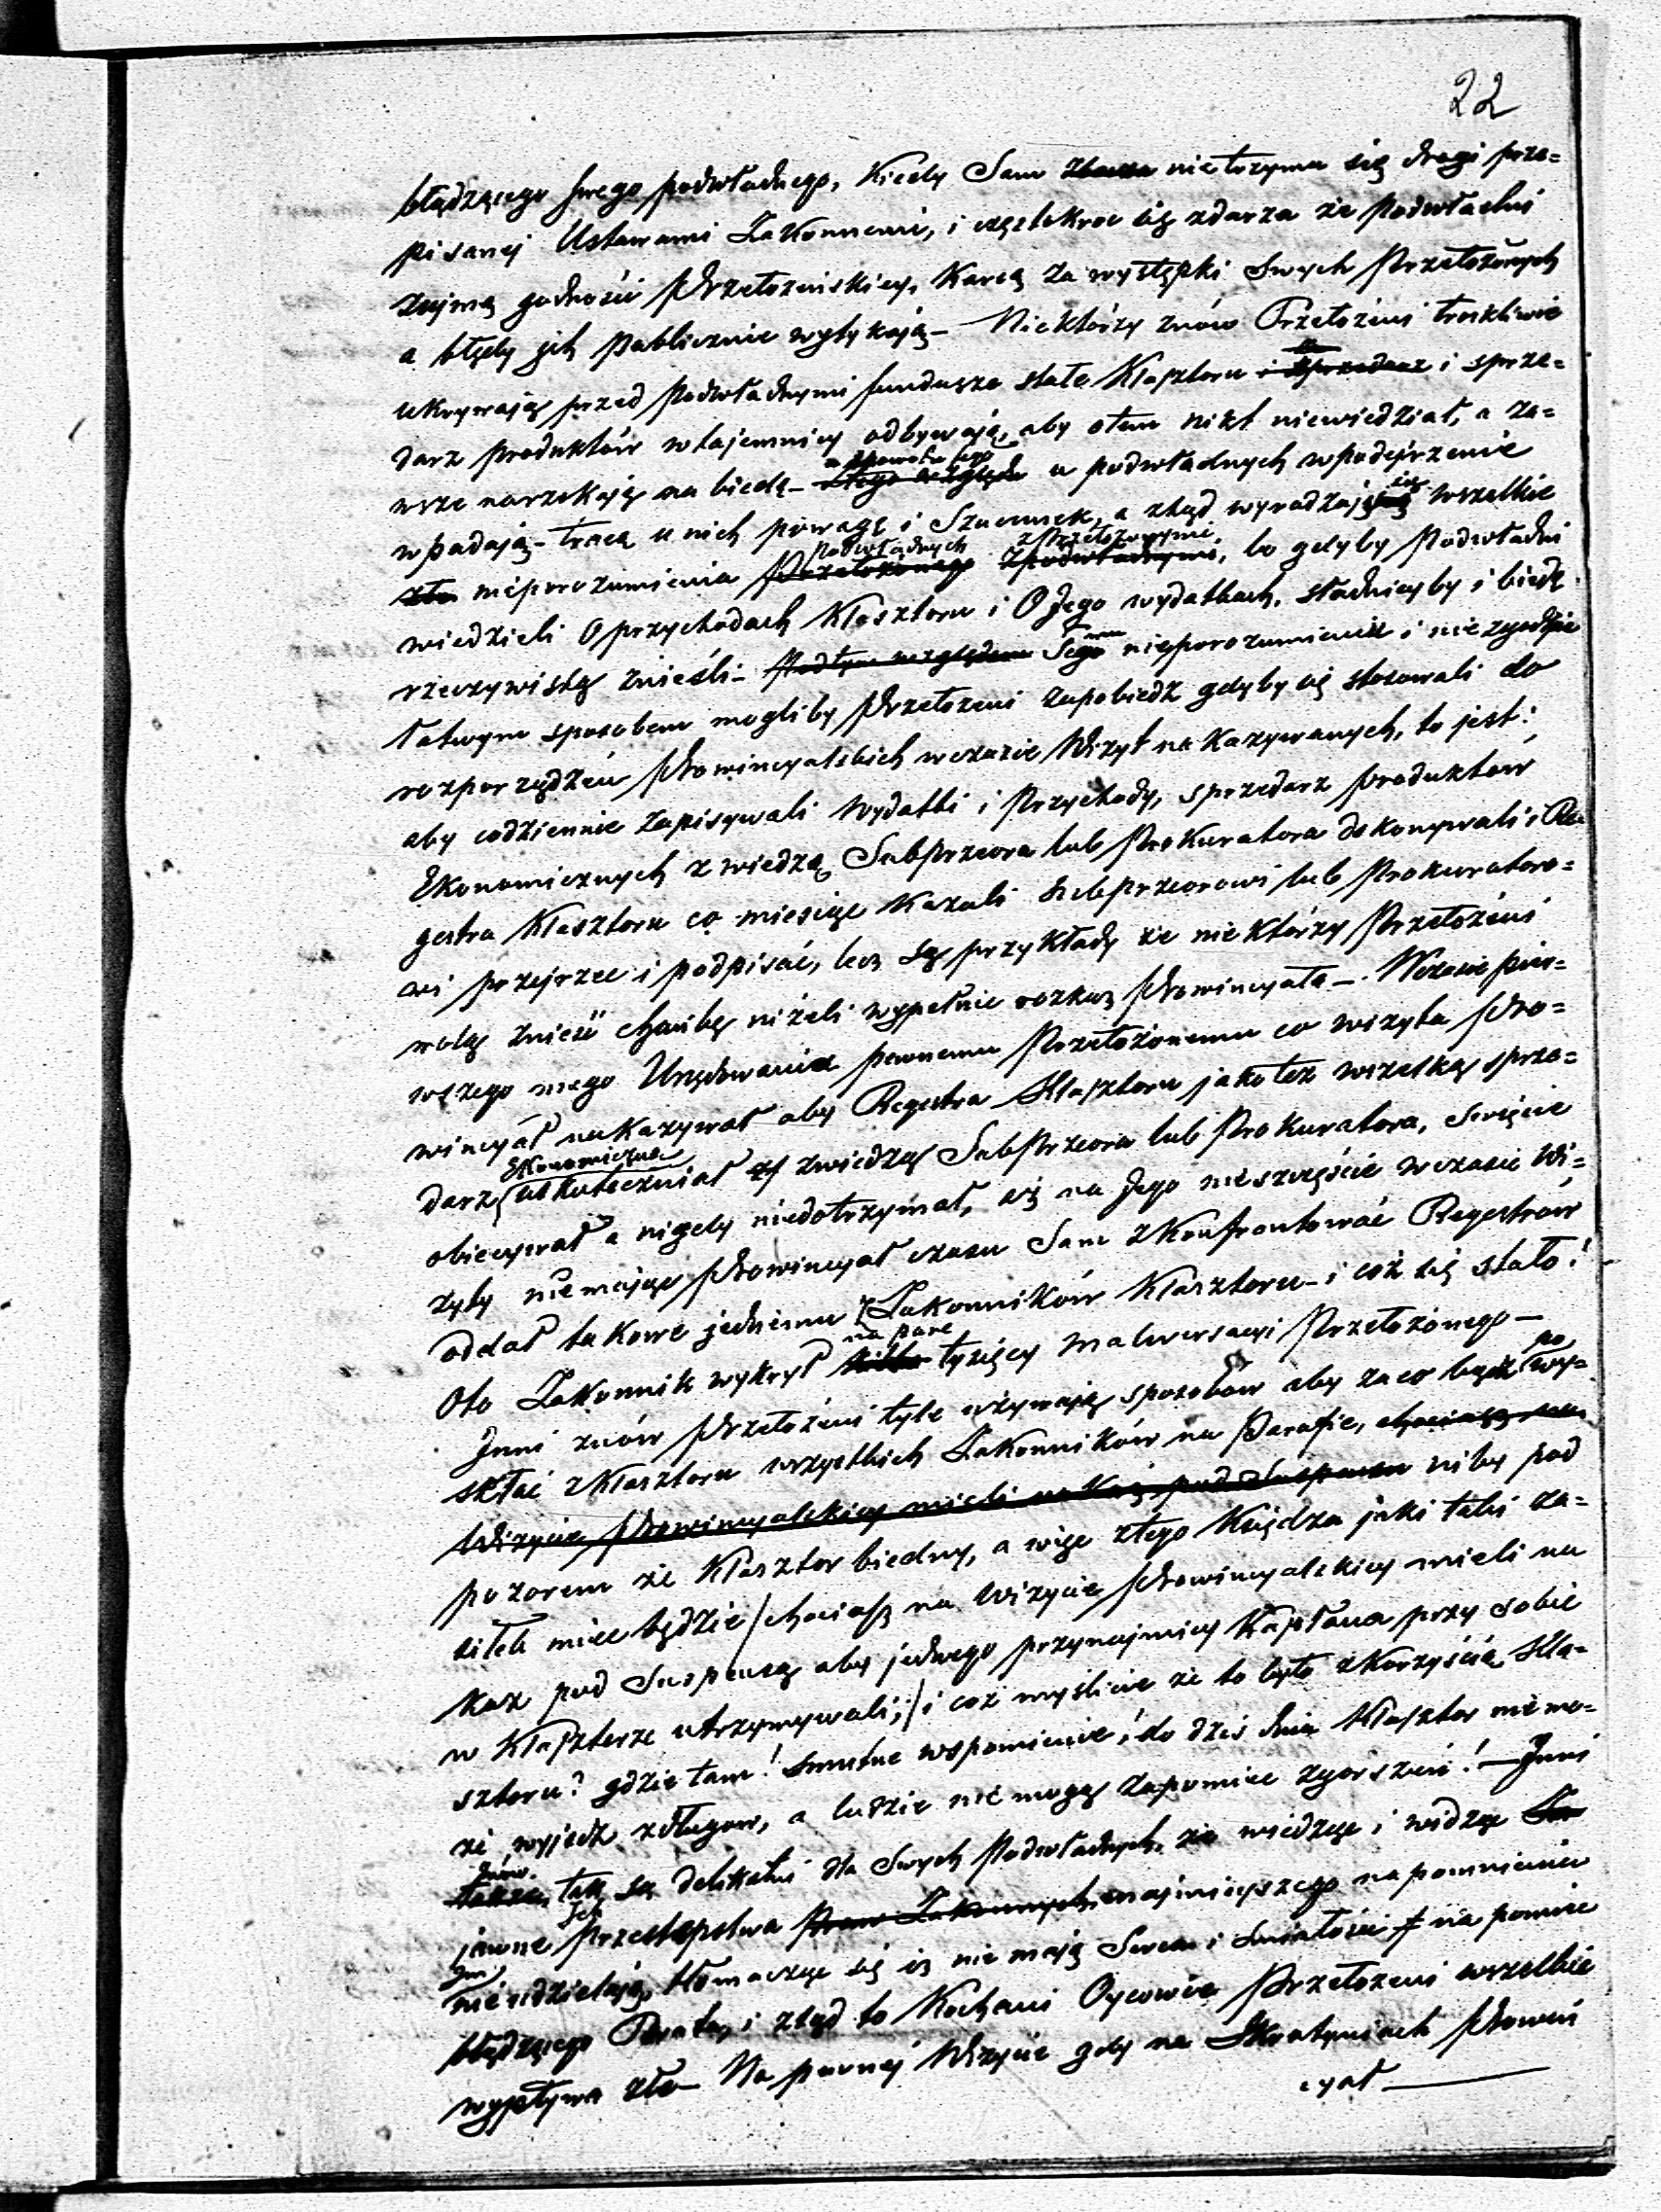 22
błądzącego swego podwładnego, Kiedy Sam nietrzyma się drogi prze=
pisanej Ustawami Zakonnemi, i częstokroć się zdarza że Podwładni
zujmą godności Przełożeńskiey, Karcą za występki Swych Przełożonych
a błędy ich publicznie wytykają — Niektórzy znów Przełożeni troskliwie
ukrywając przed Podwładnymi fundusze stałe Klasztoru i sprze=
darz produktów wtajemnicy odbywają, aby otem nikt niewiedział, a za=
wsze narzekają na biedę — a zpowodu tego u podwładnych wpodejrzenie
wpadają — tracą u nich powagę i Szacunek, a ztąd wyradzają się wszelkie
nieporozumienia podwładnych z Przełożonymi, bo gdyby Podwładni
wiedzieli o przychodach Klasztoru i O Jego wydatkach, słodniey by i biedę
rzeczywistą znieśli — Temu nieporozumieniu i niezgodzie
łatwym sposobem mogliby Przełożeni zapobiedz gdyby się stosowali do
rozporządzeń Prowincyalskich wczasie Wizyt nakazywanych, to jest:
aby codziennie zapisywali Wydatki i Przychody, sprzedarz produktów
Ekonomicznych z wiedzą Subprzeora lub Prokuratora dokonywali, Re=
gestra Klasztoru co miesiąc kazali Subprzeorowi lub Prokuratoro=
wi przejrzec i podpisać, lecz są przykłady że niektórzy Przełożeni
wolą znieść chańbę niżeli wypełnic rozkaz Prowincyała — Wczasie pier=
wszego mego Urzędowania pewnemu Przełożonemu co wizyta Pro=
wincyał nakazywał aby Regestra Klasztoru jakoteż wszelką sprze=
darz Ekonomiczną uskuteczniał zwiedzą SubPrzeora lub Prokuratora, Święcie
obiecywał a nigdy niedotrzymał, aż na Jego nieszczęście wczasie Wi=
zyty niemając Prowincyał czasu Sam zkonfrontować Regestrów
oddał takowe jednemu z Zakonników Klasztoru — i coż się stało!
Oto Zakonnik wykrył na pare tysięcy malwersacyi Przełożonego —
Inni znów Przełożeni tyle używają sposobów aby zaco bądz powy=
słać zKlasztoru wszystkich Zakonników na Parafie, niby pod
pozorem że Klasztor biedny, a więc złego Księdza jaki taki za=
siłek miec będzie / chociaż na Wizycie Prowincyalskiey mieli na
kaz pod Suspensą aby jednego przynajmniey Kapłana przy sobie
w Klasztorze utrzymywali; / i coż myślicie że to było zkorzyścią Kla=
sztoru? gdzie tam! smutne wspomnienie, do dziś dnia Klasztor nie mo=
że wyjedz zdługow, a ludzie nie mogą zapomniec zgorszeń! — Inni
znów tak są delikatni dla Swych Podwładnych, że wiedząc i widząc
jawne Ich Przestępstwa najmnieyszego napomnienia
Im nieudzielają, tłomacząc się iż nie mają Serca i śmiałości napomnic
błądzącego Brata, i ztąd to Kochani Oycowie Przełożeni wszelkie
wypływa złe — Na pewnej Wizycie gdy na Skrutyniach Prowin
cyał —